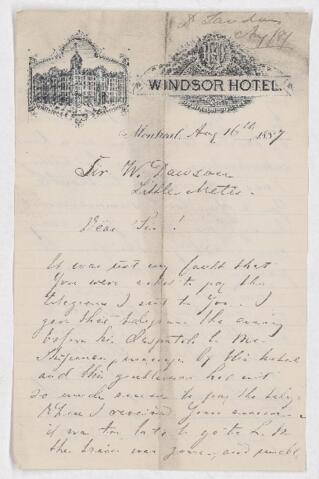 Aug /87
WINDSOR HOTEL.
Montreal, Aug 16th 1887
Sir W. Dawson
Little Metis.
Dear Sir!
It was not my fault that
You were asked to pay the
telegram I sent to You. I
gave this telegram the evening
before his
manager of this hotel
and this gentleman has not
so much sense to pay the
When I received Your
it was too late to go to L. M.
the train was gone, and